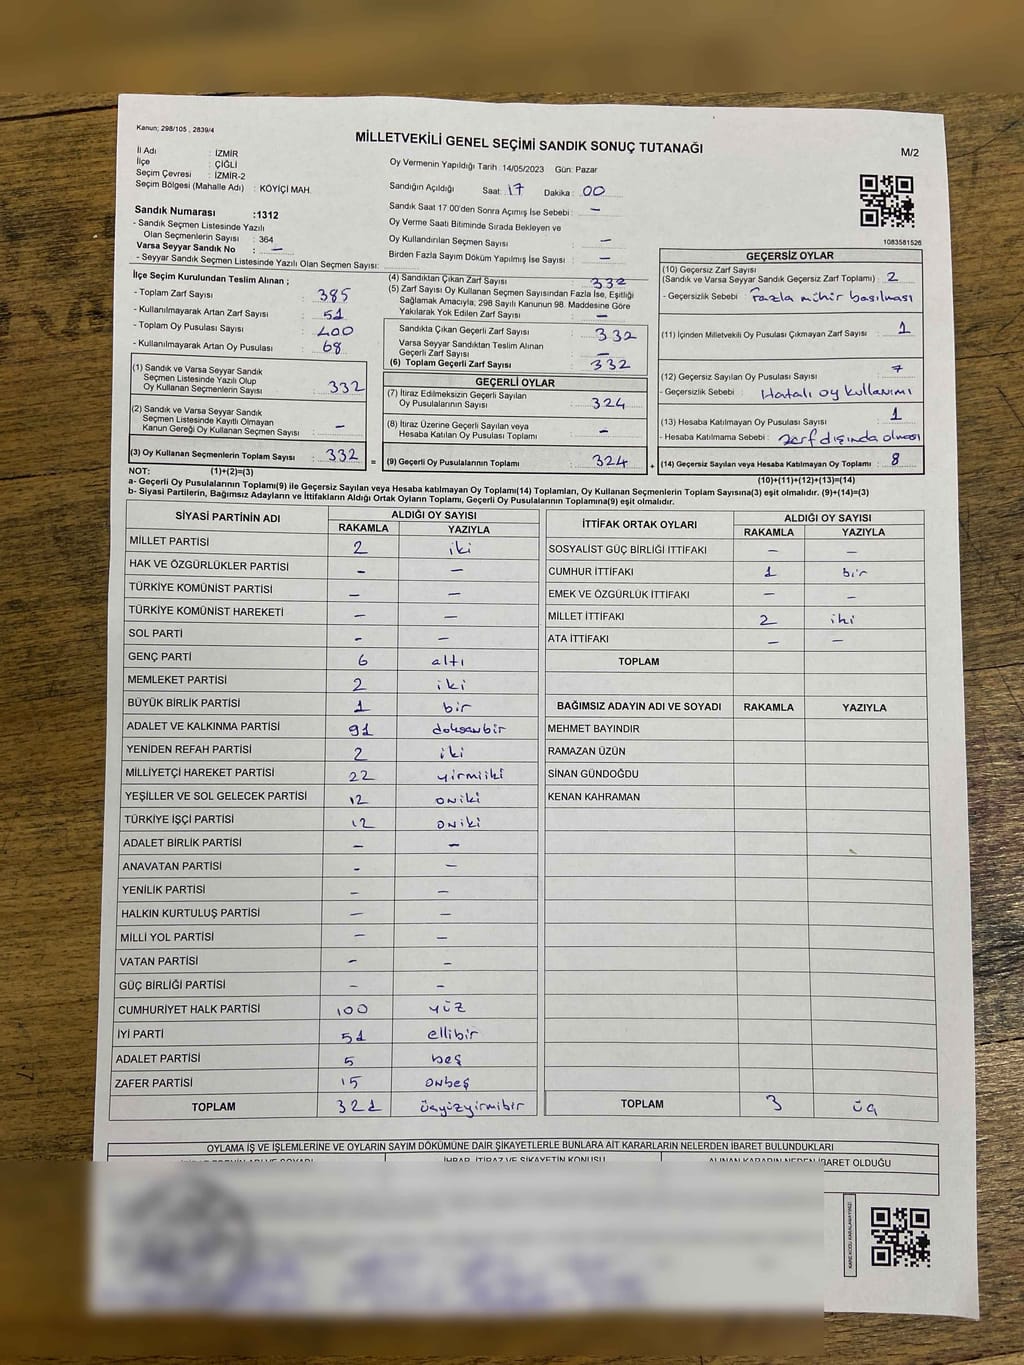 Kanun; 298/105 , 2839/4
MİLLETVEKİLİ GENEL SEÇİMİ SANDIK SONUÇ TUTANAĞI
M/2
İl Adı : İZMİR
İlçe : ÇİĞLİ
Seçim Çevresi : İZMİR-2
Seçim Bölgesi (Mahalle Adı) : KÖYİÇİ MAH.
Oy Vermenin Yapıldığı Tarih :14/05/2023 Gün: Pazar
Sandığın Açıldığı Saat: 17 Dakika : 00
Sandık Saat 17 00'den Sonra Açımış İse Sebebi : –
Oy Verme Saati Bitiminde Sırada Bekleyen ve
Oy Kullandırılan Seçmen Sayısı : –
Birden Fazla Sayım Döküm Yapılmış İse Sayısı : –
Sandık Numarası :1312
- Sandık Seçmen Listesinde Yazılı
Olan Seçmenlerin Sayısı : 364
Varsa Seyyar Sandık No : –
- Seyyar Sandık Seçmen Listesinde Yazılı Olan Seçmen Sayısı:
1083581526
İlçe Seçim Kurulundan Teslim Alınan ;
- Toplam Zarf Sayısı : 385
- Kullanılmayarak Artan Zarf Sayısı : 51
- Toplam Oy Pusulası Sayısı : 400
- Kullanılmayarak Artan Oy Pusulası : 68
(1) Sandık ve Varsa Seyyar Sandık
Seçmen Listesinde Yazılı Olup
Oy Kullanan Seçmenlerin Sayısı : 332
(2) Sandık ve Varsa Seyyar Sandık
Seçmen Listesinde Kayıtlı Olmayan
Kanun Gereği Oy Kullanan Seçmen Sayısı : –
(3) Oy Kullanan Seçmenlerin Toplam Sayısı : 332 =
(4) Sandıktan Çıkan Zarf Sayısı : 332
(5) Zarf Sayısı Oy Kullanan Seçmen Sayısından Fazla İse, Eşitliği
Sağlamak Amacıyla; 298 Sayılı Kanunun 98. Maddesine Göre
Yakılarak Yok Edilen Zarf Sayısı : –
Sandıkta Çıkan Geçerli Zarf Sayısı : 332
Varsa Seyyar Sandıktan Teslim Alınan
Geçerli Zarf Sayısı : –
(6) Toplam Geçerli Zarf Sayısı : 332
GEÇERLİ OYLAR
(7) İtiraz Edilmeksizin Geçerli Sayılan
Oy Pusulalarının Sayısı : 324
(8) İtiraz Üzerine Geçerli Sayılan veya
Hesaba Katılan Oy Pusulası Toplamı : –
(9) Geçerli Oy Pusulalarının Toplamı : 324 +
GEÇERSİZ OYLAR
(10) Geçersiz Zarf Sayısı
(Sandık ve Varsa Seyyar Sandık Geçersiz Zarf Toplamı) : 2
- Geçersizlik Sebebi : Fazla mühür basılması
(11) İçinden Milletvekili Oy Pusulası Çıkmayan Zarf Sayısı : 1
(12) Geçersiz Sayılan Oy Pusulası Sayısı : 7
- Geçersizlik Sebebi : Hatalı oy kullanımı
(13) Hesaba Katılmayan Oy Pusulası Sayısı : 1
- Hesaba Katılmama Sebebi : zarf dışında olması
(14) Geçersiz Sayılan veya Hesaba Katılmayan Oy Toplamı : 8
NOT: (1)+(2)=(3)
(10)+(11)+(12)+(13)=(14)
a- Geçerli Oy Pusulalarının Toplamı(9) ile Geçersiz Sayılan veya Hesaba katılmayan Oy Toplamı(14) Toplamları, Oy Kullanan Seçmenlerin Toplam Sayısına(3) eşit olmalıdır. (9)+(14)=(3)
b- Siyasi Partilerin, Bağımsız Adayların ve İttifakların Aldığı Ortak Oyların Toplamı, Geçerli Oy Pusulalarının Toplamına(9) eşit olmalıdır.
SİYASİ PARTİNİN ADI ALDIĞI OY SAYISI
RAKAMLA YAZIYLA
MİLLET PARTİSİ 2 iki
HAK VE ÖZGÜRLÜKLER PARTİSİ – –
TÜRKİYE KOMÜNİST PARTİSİ – –
TÜRKİYE KOMÜNİST HAREKETİ – –
SOL PARTİ – –
GENÇ PARTİ 6 altı
MEMLEKET PARTİSİ 2 iki
BÜYÜK BİRLİK PARTİSİ 1 bir
ADALET VE KALKINMA PARTİSİ 91 doksanbir
YENİDEN REFAH PARTİSİ 2 iki
MİLLİYETÇİ HAREKET PARTİSİ 22 yirmiiki
YEŞİLLER VE SOL GELECEK PARTİSİ 12 oniki
TÜRKİYE İŞÇİ PARTİSİ 12 oniki
ADALET BİRLİK PARTİSİ – –
ANAVATAN PARTİSİ – –
YENİLİK PARTİSİ – –
HALKIN KURTULUŞ PARTİSİ – –
MİLLİ YOL PARTİSİ – –
VATAN PARTİSİ – –
GÜÇ BİRLİĞİ PARTİSİ – –
CUMHURİYET HALK PARTİSİ 100 yüz
İYİ PARTİ 51 ellibir
ADALET PARTİSİ 5 beş
ZAFER PARTİSİ 15 onbeş
TOPLAM 321 üçyüzyirmibir
İTTİFAK ORTAK OYLARI ALDIĞI OY SAYISI
RAKAMLA YAZIYLA
SOSYALİST GÜÇ BİRLİĞİ İTTİFAKI – –
CUMHUR İTTİFAKI 1 bir
EMEK VE ÖZGÜRLÜK İTTİFAKI – –
MİLLET İTTİFAKI 2 iki
ATA İTTİFAKI – –
TOPLAM
BAĞIMSIZ ADAYIN ADI VE SOYADI RAKAMLA YAZIYLA
MEHMET BAYINDIR
RAMAZAN ÜZÜN
SİNAN GÜNDOĞDU
KENAN KAHRAMAN
TOPLAM 3 üç
OYLAMA İŞ VE İŞLEMLERİNE VE OYLARIN SAYIM DÖKÜMÜNE DAİR ŞİKAYETLERLE BUNLARA AİT KARARLARIN NELERDEN İBARET BULUNDUKLARI
İHBAR, İTİRAZ VE ŞİKAYETİN KONUSU ALINAN KARARIN NEDEN İBARET OLDUĞU